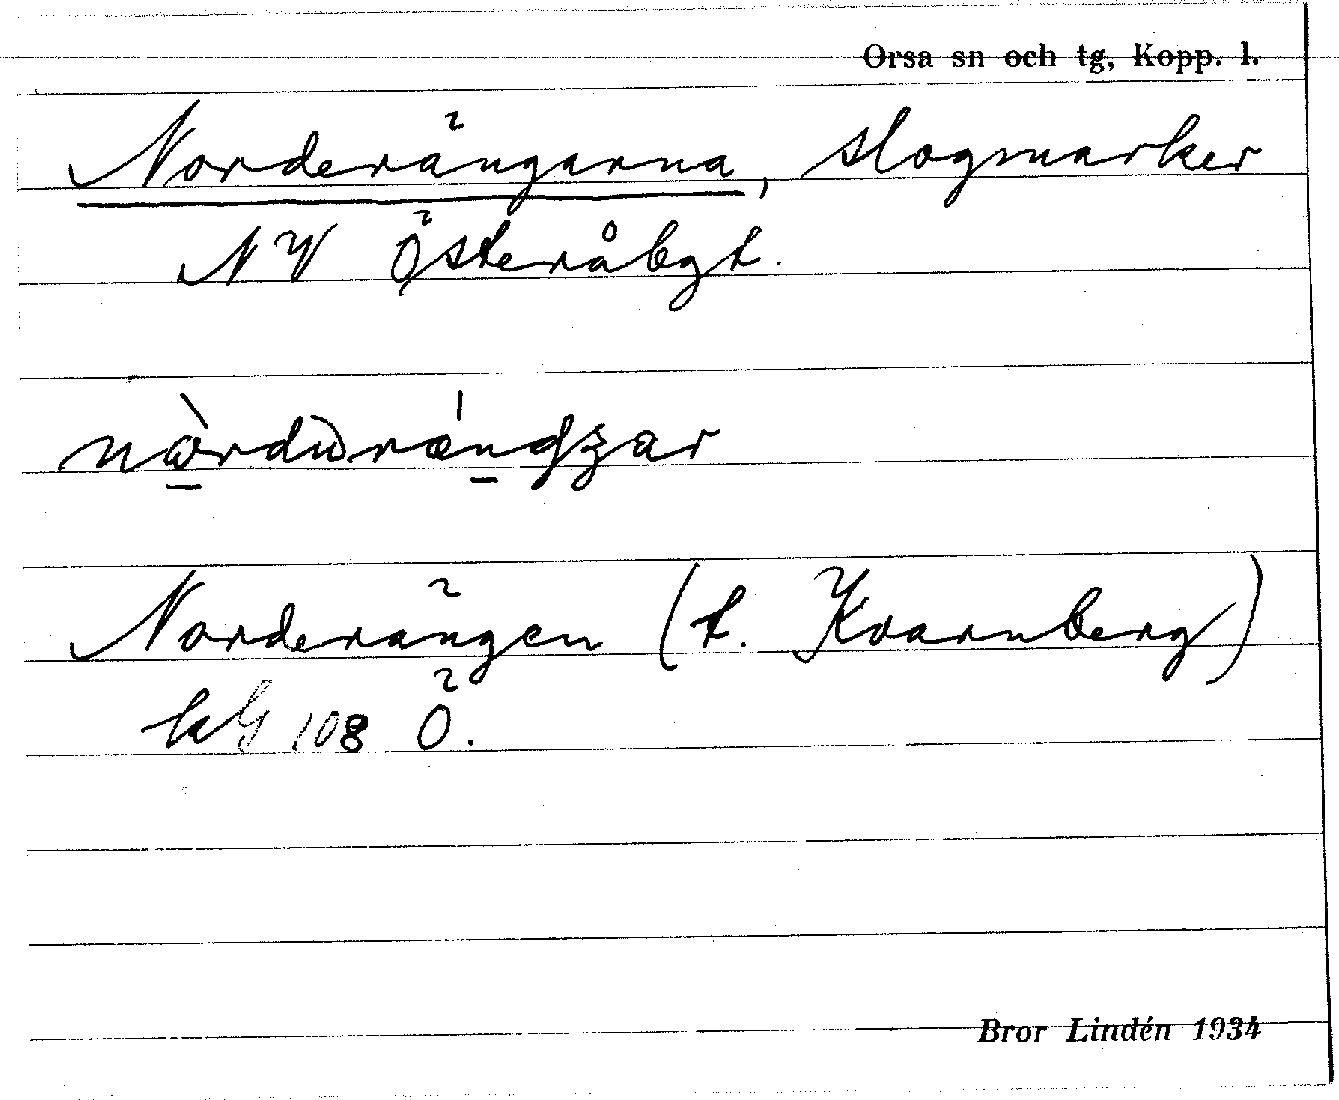 Orsa sn och tg, Kopp. l.
Norderängarna, slogmarker
NV Österåbygt.
Norderängen (t. Kvarnberg)
kG 108 Ö.
Bror Lindén 1934